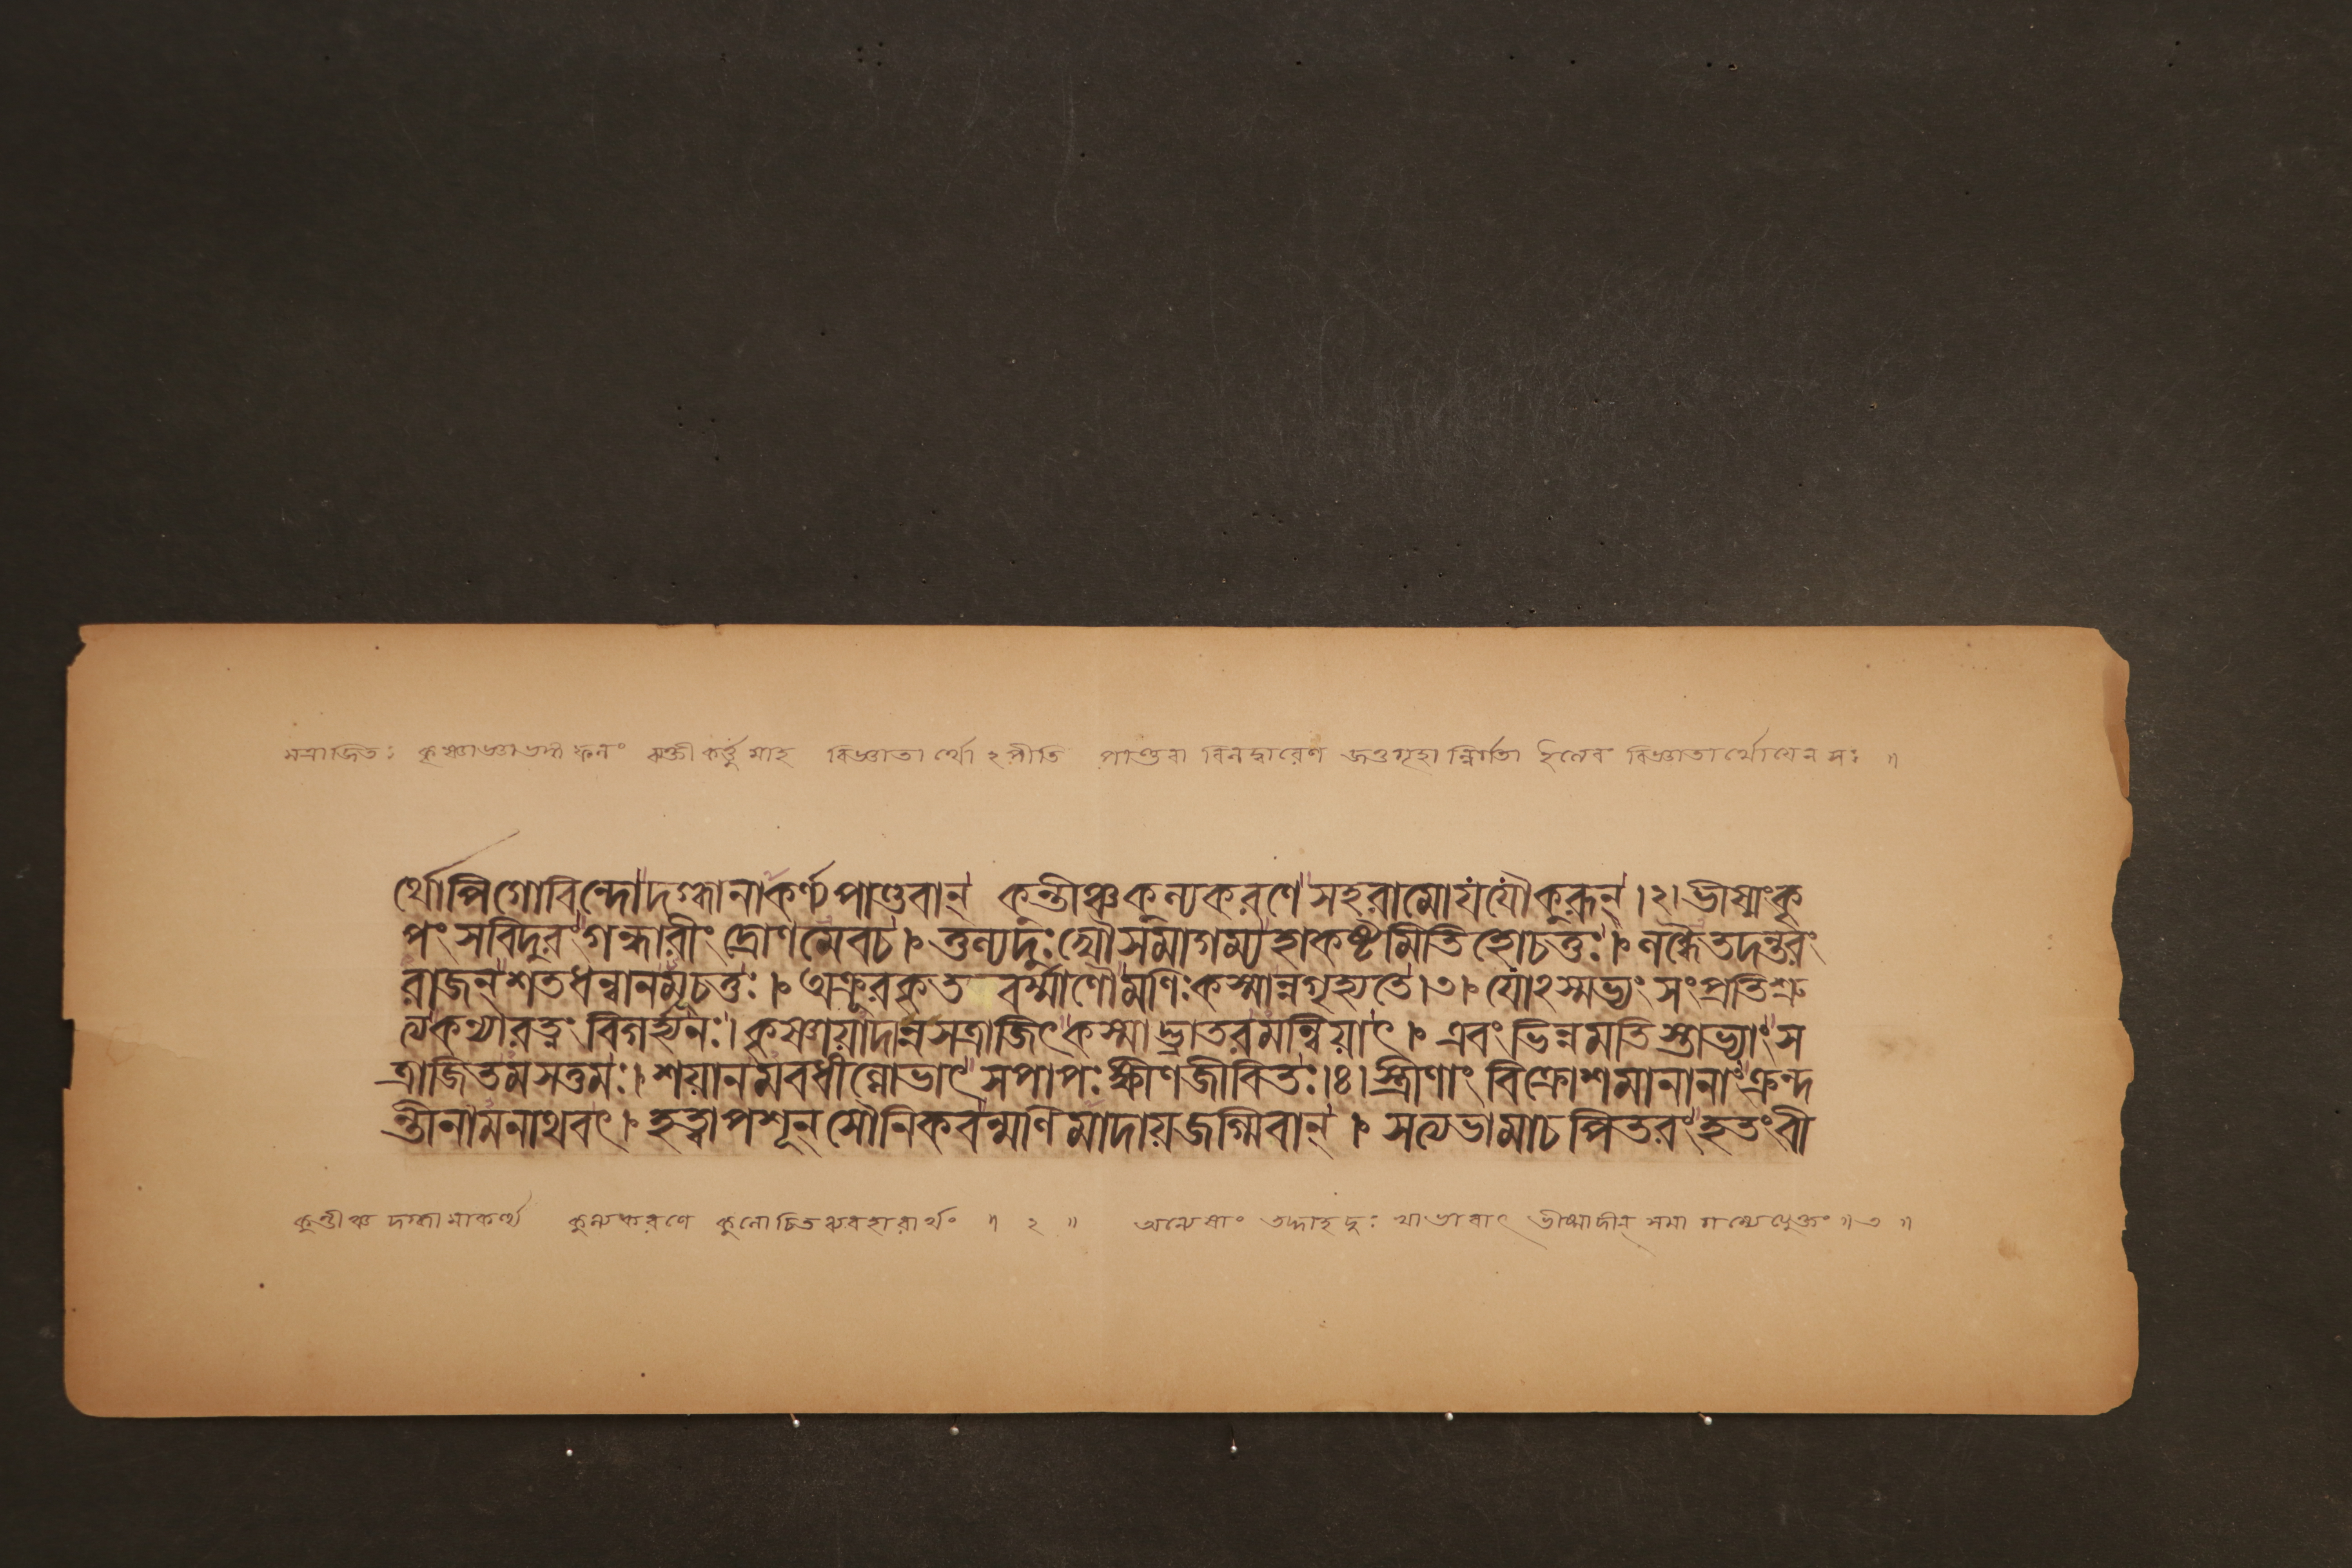 সত্রাজিতঃ কৃষ্ণাজ্ঞাভঙ্গ ফলং ব্যক্তী কর্ত্তু মাহ বিজ্ঞাতা র্থো ঽপীতি পাণ্ডবা বিলদ্বারেণ জতুগৃহা ন্নির্গতা ইত্যেবং বিজ্ঞাতার্থোযেন সঃ ॥
র্থোপিগোবিন্দোদগ্ধানাকর্ণ্যপাণ্ডবান্ কন্তীঞ্চকল্যকরণেসহরামোযযৌকুরূন্।২।ভীষ্মংকৃ
পং সবিদুরং গন্ধারীং দ্রোণমেবচ। তুল্যদুঃখৌসমাগম্যহাকষ্টমিতিহোচতুঃ। লব্ধৈতদন্তরং
রাজন্শতধন্বানমূচতুঃ। অক্রূরকৃত বর্ম্মাণৌমণিঃকস্মান্নগৃহ্যতে।৩। যোঽস্মভ্যং সংপ্রতিশ্রু
ত্যকন্যারত্নং বিগর্হ্যনঃ।কৃষ্ণায়াদান্নসত্রাজিৎকস্মাদ্ভ্রাতরমন্বিয়াৎ। এবং ভিন্নমতিস্তাভ্যাং স
ত্রাজিতমসত্তমঃ।শয়ানমবধীল্লোভাৎসপাপঃক্ষীণজীবিতঃ।৪।স্ত্রীণাং বিক্রোশমানানাংক্রন্দ
ন্তীনামনাথবৎ। হত্বাপশূন্সৌনিকবন্মণিমাদায়জগ্মিবান্। সত্যভামাচপিতরংহতংবী
কুন্তীঞ্চ দগ্ধামাকর্ণ্য কুল্যকরণে কুলোচিতব্যবহারার্থং ॥ ২ ॥ অন্যেষাং তদ্দাহদুঃ খাভাবাৎ ভীষ্মাদীন্ সমা গম্যেত্যুক্তং ॥ ৩ ॥